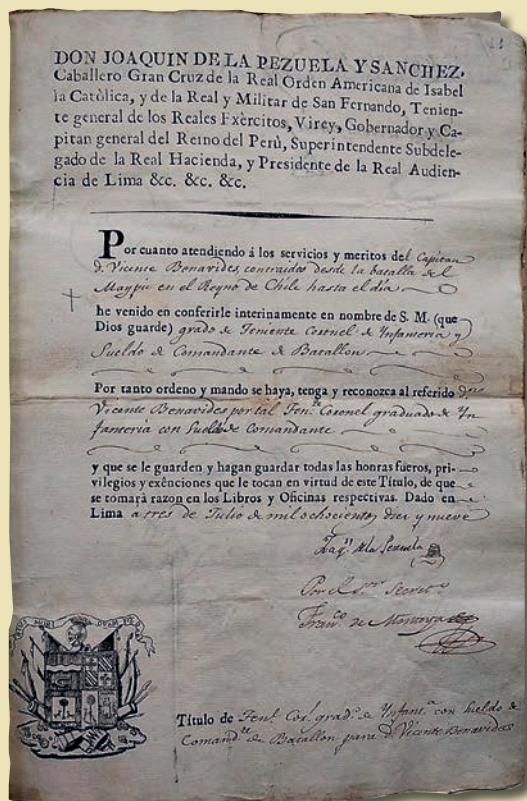 DON JOAQUIN DE LA PEZUELA Y SANCHEZ,
Caballero Gran Cruz de la Real Orden Americana de Isabel
la Católica, y de la Real y Militar de San Fernando, Tenien-
te general de los Reales Exèrcitos, Virey, Gobernador y Ca-
pitan general del Reino del Perù, Superintendente Subdele-
gado de la Real Hacienda, y Presidente de la Real Audien-
cia de Lima &c. &c. &c.
Por cuanto atendiendo á los servicios y meritos del Capitan
D. Vicente Benavides, contraidos desde la batalla del
Maypù en el Reyno de Chile hasta el dia
he venido en conferirle interinamente en nombre de S. M. (que
Dios guarde) grado de Teniente Coronel de Infanteria y
Sueldo de Comandante de Batallon
Por tanto ordeno y mando se haya, tenga y reconozca al referido Dn
Vicente Benavides por tal Ten.te Coronel graduado de Yn
fanteria con Sueldo de Comandante
y que se le guarden y hagan guardar todas las honras fueros, pri-
vilegios y exênciones que le tocan en virtud de este Título, de que
se tomarà razon en los Libros y Oficinas respectivas. Dado en
Lima a tres de Julio de mil ochocientos diez y nueve
Joaqn. de la Pezuela
Por el Sor. Secreto.
Franco. de Montoya
Título de Tent. Corl. grado. de Ynfanta. con sueldo de
Comandte. de Batallon para D. Vicente Benavides